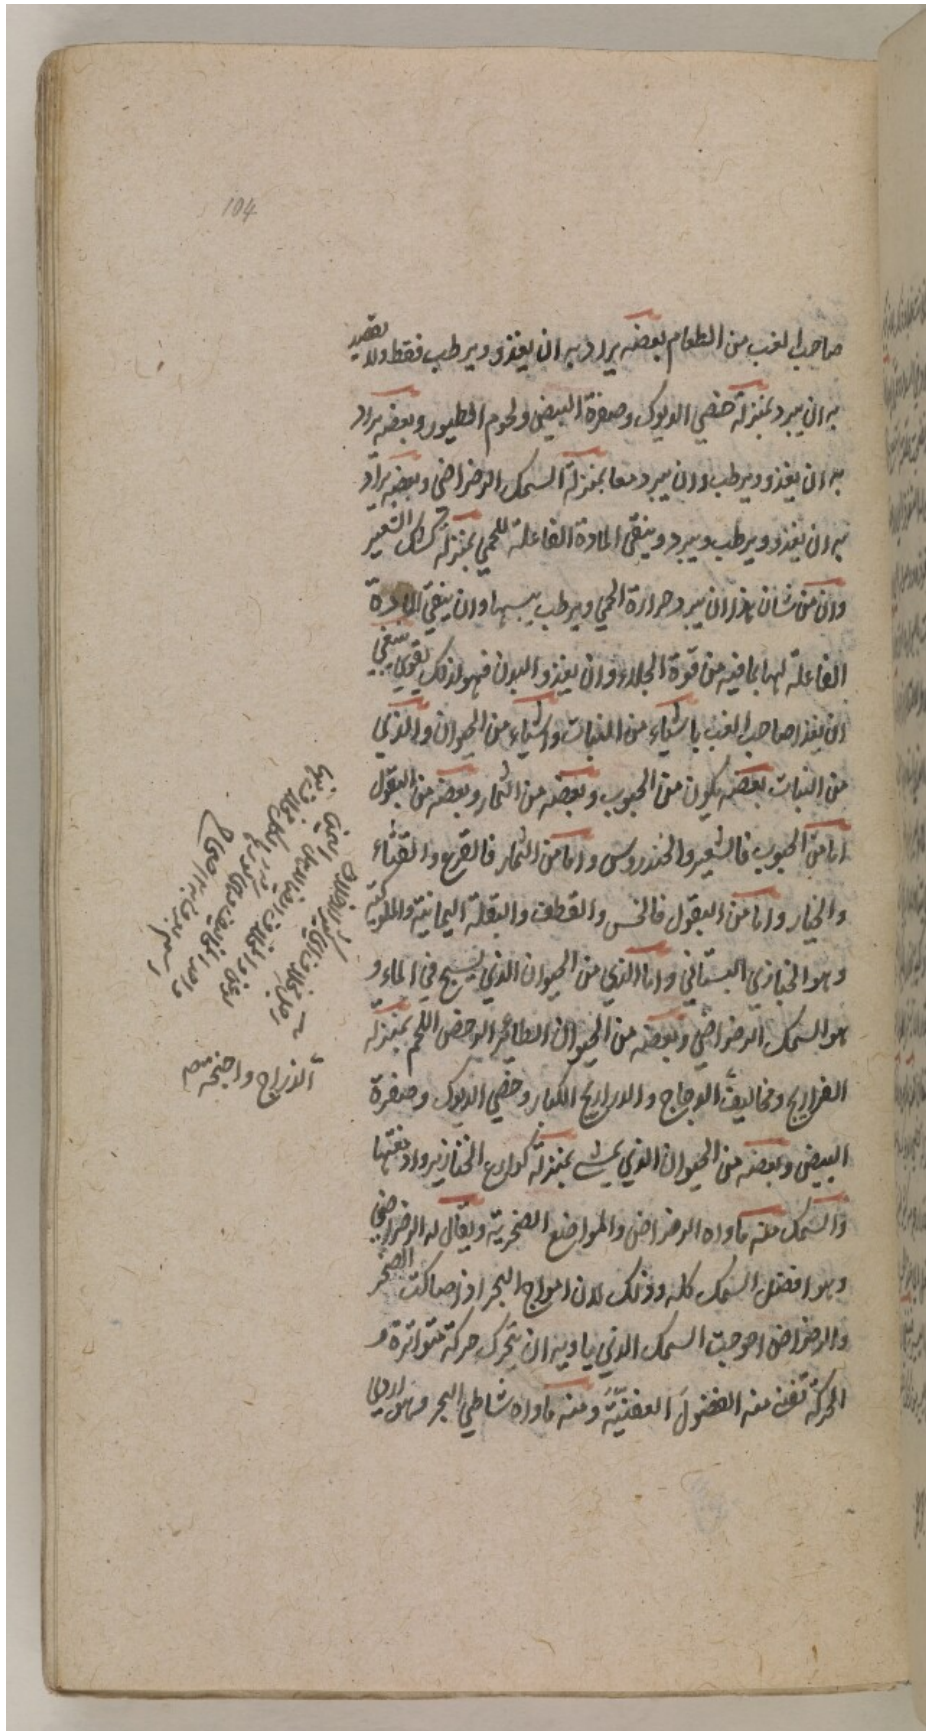 104
صاحب الغب من الطعام بعضه يراد به ان يغذو ويرطب فقط ولا يقصد
به ان يبرد بمنزلة خصي الديوك وصفرة البيض ولحوم الطيور وبعضه يراد
به ان يغذو ويرطب وان يبرد معا بمنزلة السمك الرضراضى وبعضه يراد
به ان يغذو ويرطب ويبرد وينقى المادة الفاعلة للحمى بمنزلة كشك الشعير
وان من شان هذا ان يبرد حرارة الحمى ويرطب يبسها وان ينقي المادة
الفاعلة لها بما فيه من قوة الجلاء وان يغذو البدن فهو لذلك يقوي ينبغي
ان يغذا صاحب الغب باشياء من النبات واشياء من الحيوان والذي
من النبات بعضه يكون من الحبوب وبعضه من الثمار وبعضه من البقول
اما من الحبوب فالشعير والخندروس واما من الثمار فالقرع والقثاء
والخيار واما من البقول فالخس والقطف والبقلة اليمانية والملوكية
وهو الخبازي البستاني واما الذي من الحيوان الذي يسبح في الماء و
هو السمك الرضراضي وبعضه من الحيوان الطائر الرخص اللحم بمنزلة
الفراريج ومخاليف الدجاج والدراريج الكبار وخصي الديوك وصفرة
البيض وبعضه من الحيوان الذي يمشي بمنزلة كوارع الخنازير وادمغتها
والسمك منه ماواه الرضراض والمواضع الصخرية ويقال له الرضراضي
وهو افضل السمك كله وذلك لان امواج البحر اذا صاكت الصخر
والرضراض احوجت السمك الذي ياويه ان يتحرك حركة متواترة و
الحركة تفني منه الفضول العفنيّة ومنه ماواه شاطي البحر وهو اردي
الدراج واجنحته صح